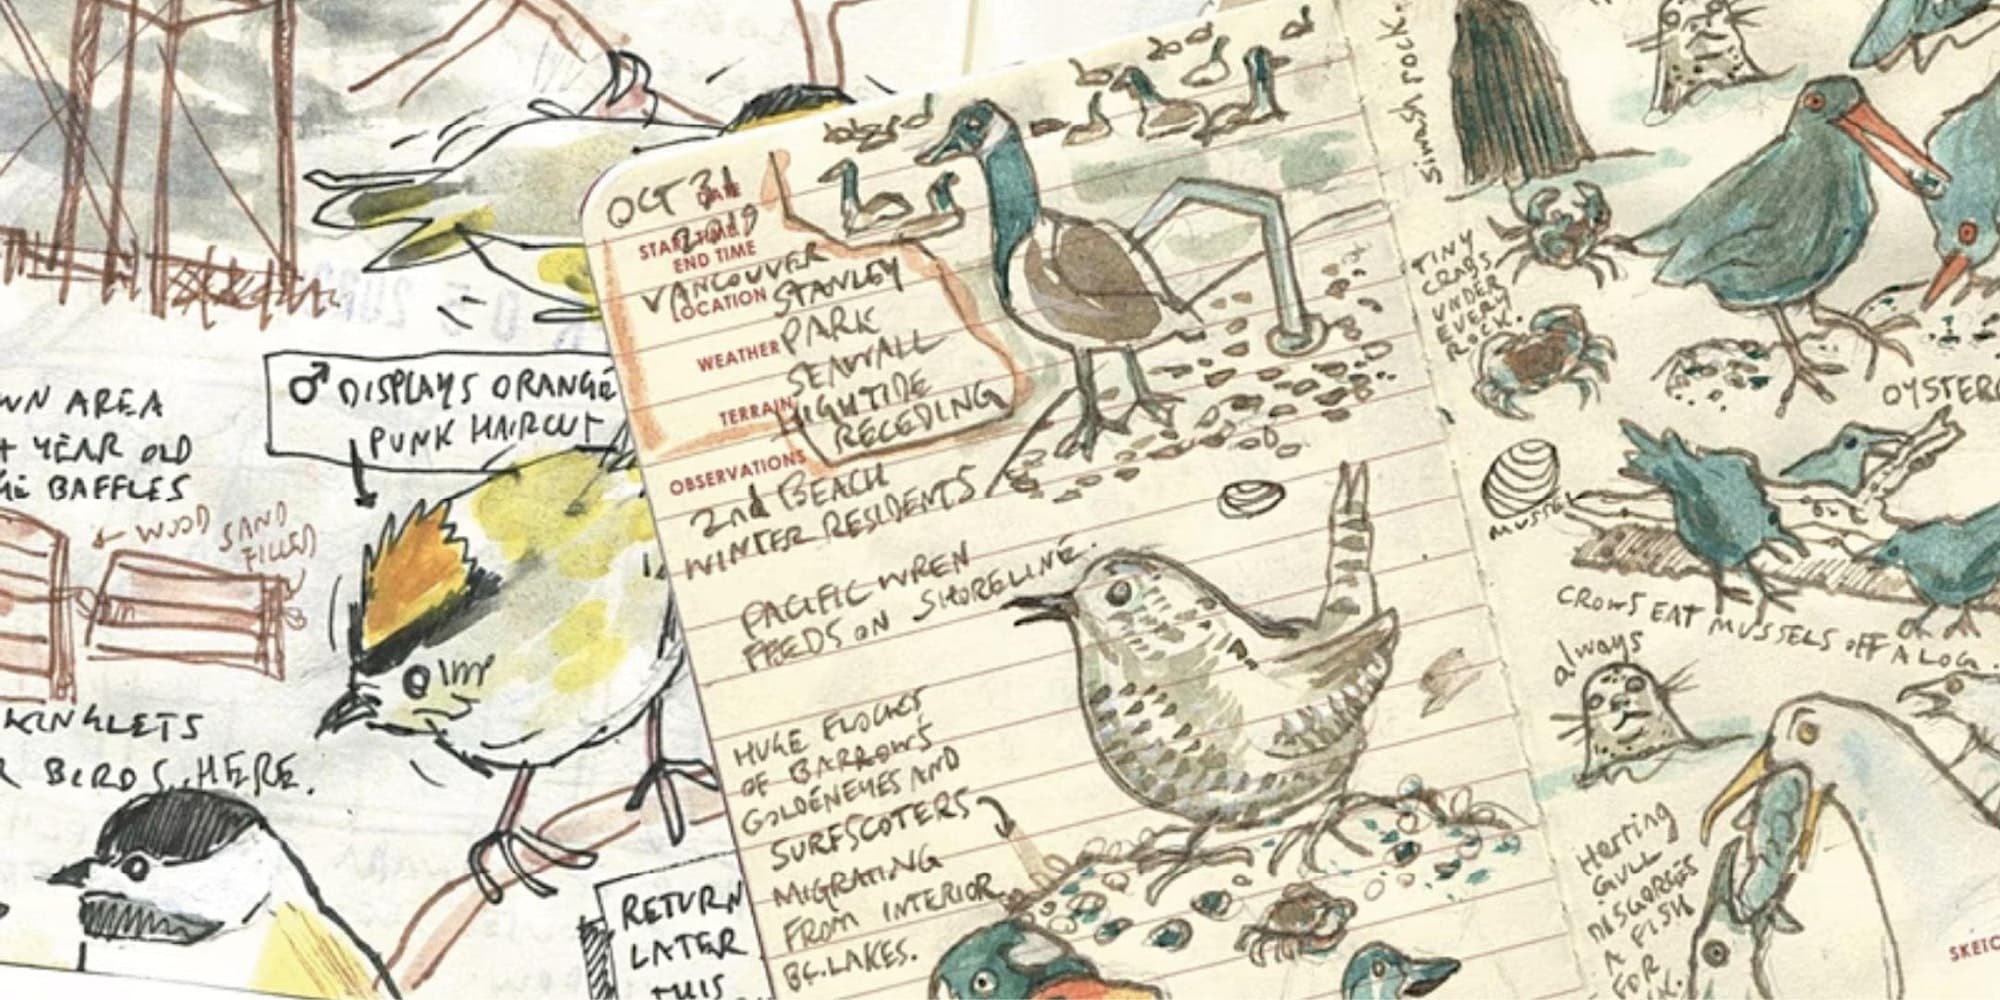 WN AREA
4 YEAR OLD
HE BAFFLES
← WOOD
SAND
FILLED
KINGLETS
R BIRDS HERE.
♂ DISPLAYS ORANGE
PUNK HAIRCUT
RETURN
LATER
THIS
OCT 31
DATE
2019
START TIME
END TIME
VANCOUVER
LOCATION
STANLEY
PARK
WEATHER
SEAWALL
HIGH TIDE
TERRAIN
RECEDING
OBSERVATIONS
2nd BEACH
WINTER RESIDENTS
PACIFIC WREN
FEEDS ON SHORELINE.
HUGE FLOCKS
OF BARROWS
GOLDENEYES AND
SURFSCOTERS
MIGRATING
FROM INTERIOR
B.C. LAKES.
Siwash rock.
TINY
CRABS
UNDER
EVERY
ROCK.
OYSTERC
MUSSEL
CROWS EAT MUSSELS OFF A LOG.
always
Herring
GULL
DISGORGES
A FISH
FOR
SKETC